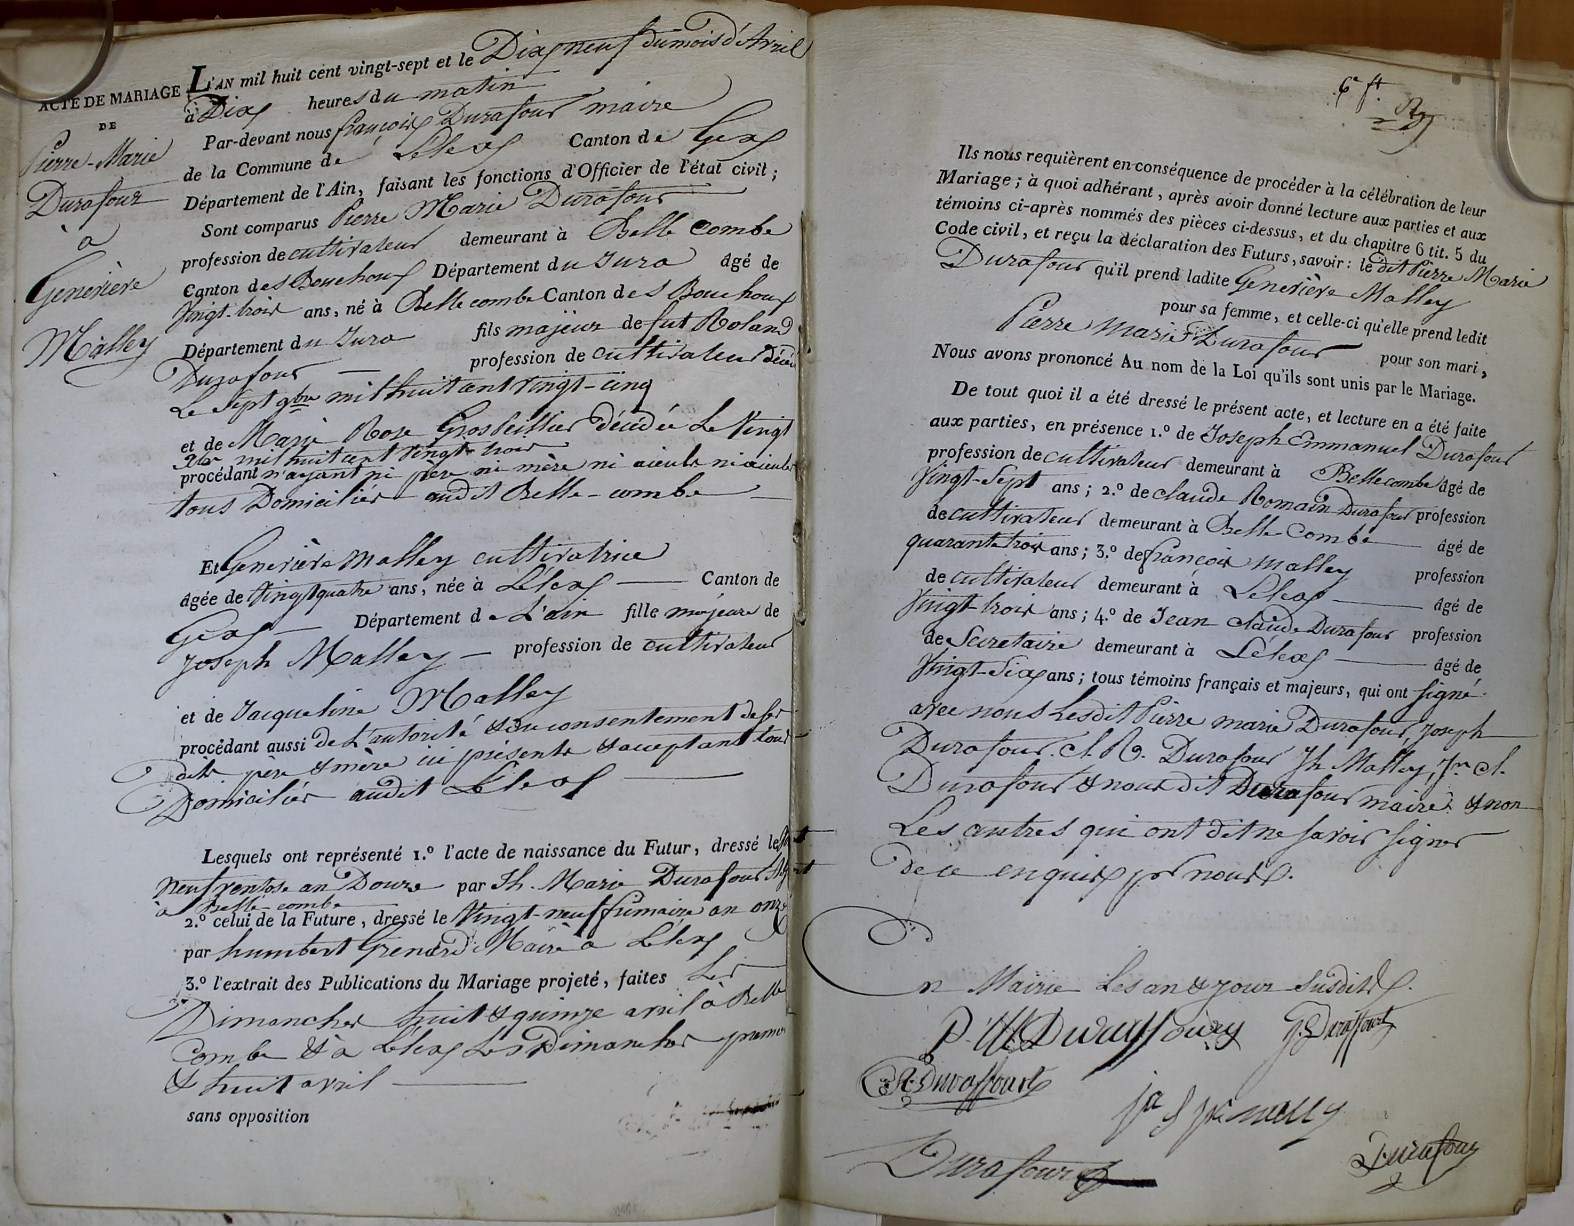 ACTE DE MARIAGE
DE
Pierre-Marie
Durafour
à
Genevière
Malley
L'AN mil huit cent vingt-sept et le Dix neuf du mois d'Avril
à Dix heures du matin
Par-devant nous françois Durafour maire
de la Commune de Lélex Canton de Gex
Département de l'Ain, faisant les fonctions d'Officier de l'état civil ;
Sont comparus Pierre Marie Durafour
profession de cultivateur demeurant à Belle combe
Canton des Bouchoux Département du Jura âgé de
Vingt-trois ans, né à Belle combe Canton des Bouchoux
Département du Jura fils majeur de fut Roland
Durafour profession de cultivateur décédé
Le sept 9bre mil huit cent vingt-cinq
et de Marie Rose Grosfeillier décédée Le Vingt
mil huit cent vingt trois
procédant n'ayant ni père ni mère ni aieuls ni aieules
tous Domiciliés audit Belle-combe
Et Genevière Malley cultivatrice
âgée de Vingt quatre ans, née à Lélex Canton de
Gex Département de L'ain fille majeure de
Joseph Malley profession de cultivateur
et de Jacqueline Malley
procédant aussi de L'autorité & du consentement de ses
dits père & mère ici présents & acceptant tous
Domiciliés audit Lélex
Lesquels ont représenté 1.º l'acte de naissance du Futur, dressé le
neuf ventose an Douze par Jh. Marie Durafour
à Belle combe
2.º celui de la Future, dressé le Vingt-neuf frimaire an onze
par humbert Grenard Maire à Lélex
3.º l'extrait des Publications du Mariage projeté, faites Les
Dimanches huit & quinze avril à Belle
Combe & à Lélex Les Dimanches premier
& huit avril
sans opposition
6e ft.
Ils nous requièrent en conséquence de procéder à la célébration de leur
Mariage ; à quoi adhérant, après avoir donné lecture aux parties et aux
témoins ci-après nommés des pièces ci-dessus, et du chapitre 6 tit. 5 du
Code civil, et reçu la déclaration des Futurs, savoir : le dit Pierre Marie
Durafour qu'il prend ladite Genevière Malley
pour sa femme, et celle-ci qu'elle prend ledit
Pierre Marie Durafour pour son mari,
Nous avons prononcé Au nom de la Loi qu'ils sont unis par le Mariage.
De tout quoi il a été dressé le présent acte, et lecture en a été faite
aux parties, en présence 1.º de Joseph Emmanuel Durafour
profession de cultivateur demeurant à Bellecombe âgé de
Vingt-Sept ans ; 2.º de claude Romain Durafour profession
de cultivateur demeurant à Belle Combe âgé de
quarante trois ans ; 3.º de françois Malley profession
de cultivateur demeurant à Lélex âgé de
Vingt-trois ans ; 4.º de Jean Claude Durafour profession
de Secretaire demeurant à Lélex âgé de
Vingt-Six ans ; tous témoins français et majeurs, qui ont signé
avec nous Lesdit Pierre marie Durafour, Joseph
Durafour. Cl. R. Durafour Jh Malley, Jn Cl.
Durafour & nous dit Durafour maire & non
Les autres qui ont dit ne savoir signer
de ce enquis par nous.
En Mairie Les an & jour Susdits.
P. M Duraffourg J. Duraffourd
R. Duraffourd
Durafour
Durafour